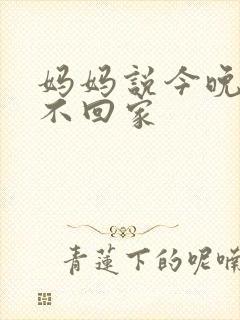 妈妈説今晚
不回家
青蓮下的呢喃